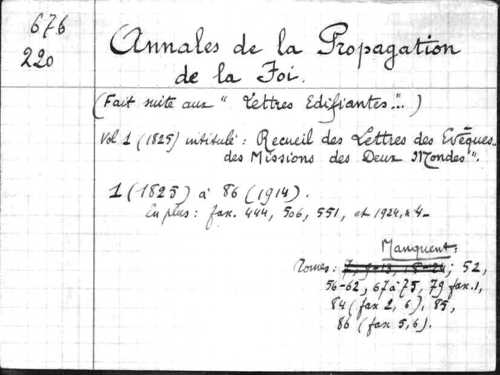 676
220
Annales de la Propagation
de la Foi.
(Fait suite aux "Lettres Edifiantes"...)
Vol 1 (1825) intitulé : Recueil des Lettres des Evêques
des Missions des Deux Mondes".
1 (1825) à 86 (1914).
En plus : fax. 444, 506, 551, et 1924, n 4
Manquent :
Tomes : 7, 9-13, 18-24; 52,
56-62, 67 à 75, 79 fax. 1,
84 (fax 2, 6), 85,
86 (fax 5, 6).